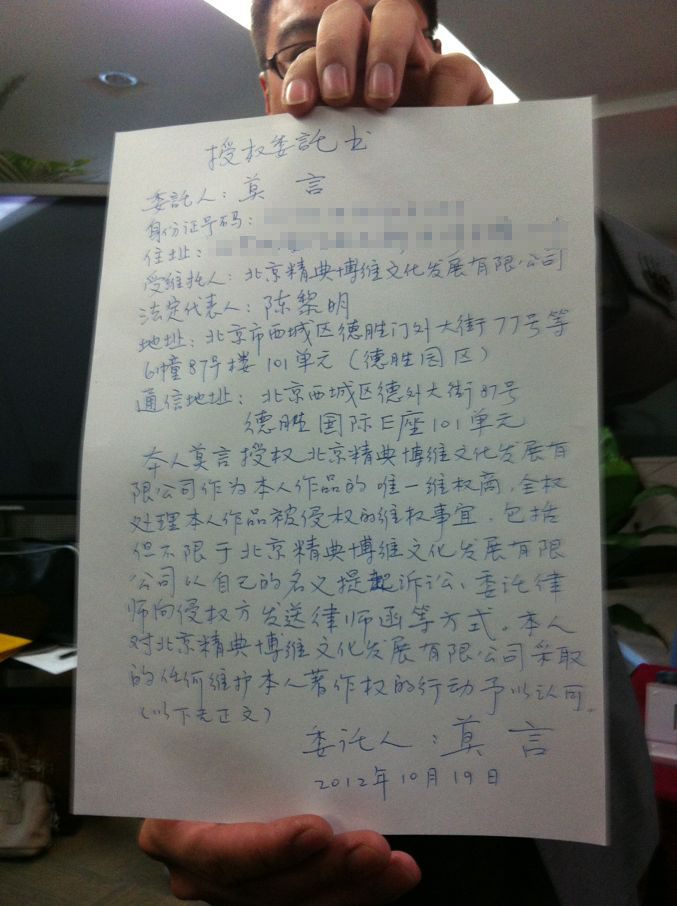 授权委託书
委託人：莫言
身份证号码：
住址：
受维托人：北京精典博维文化发展有限公司
法定代表人：陈黎明
地址：北京市西城区德胜门外大街77号等
6幢87号楼101单元（德胜园区）
通信地址：北京西城区德外大街87号
德胜国际E座101单元
本人莫言授权北京精典博维文化发展有
限公司作为本人作品的唯一维权商，全权
处理本人作品被侵权的维权事宜，包括
但不限于北京精典博维文化发展有限
公司以自己的名义提起诉讼、委托律
师向侵权方发送律师函等方式。本人
对北京精典博维文化发展有限公司采取
的任何维护本人著作权的行动予以认可。
（以下无正文）
委讬人：莫言
2012年10月19日